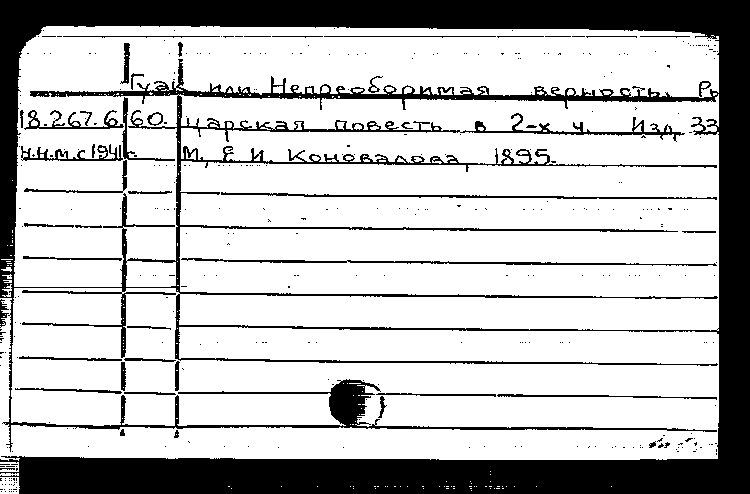 Гуак или Непреоборимая верность. Ры
18.267.6.60. царская повесть в 2-х ч. Изд. 33
н.н.м.с 1941г. М., Е И. Коновалова, 1895.